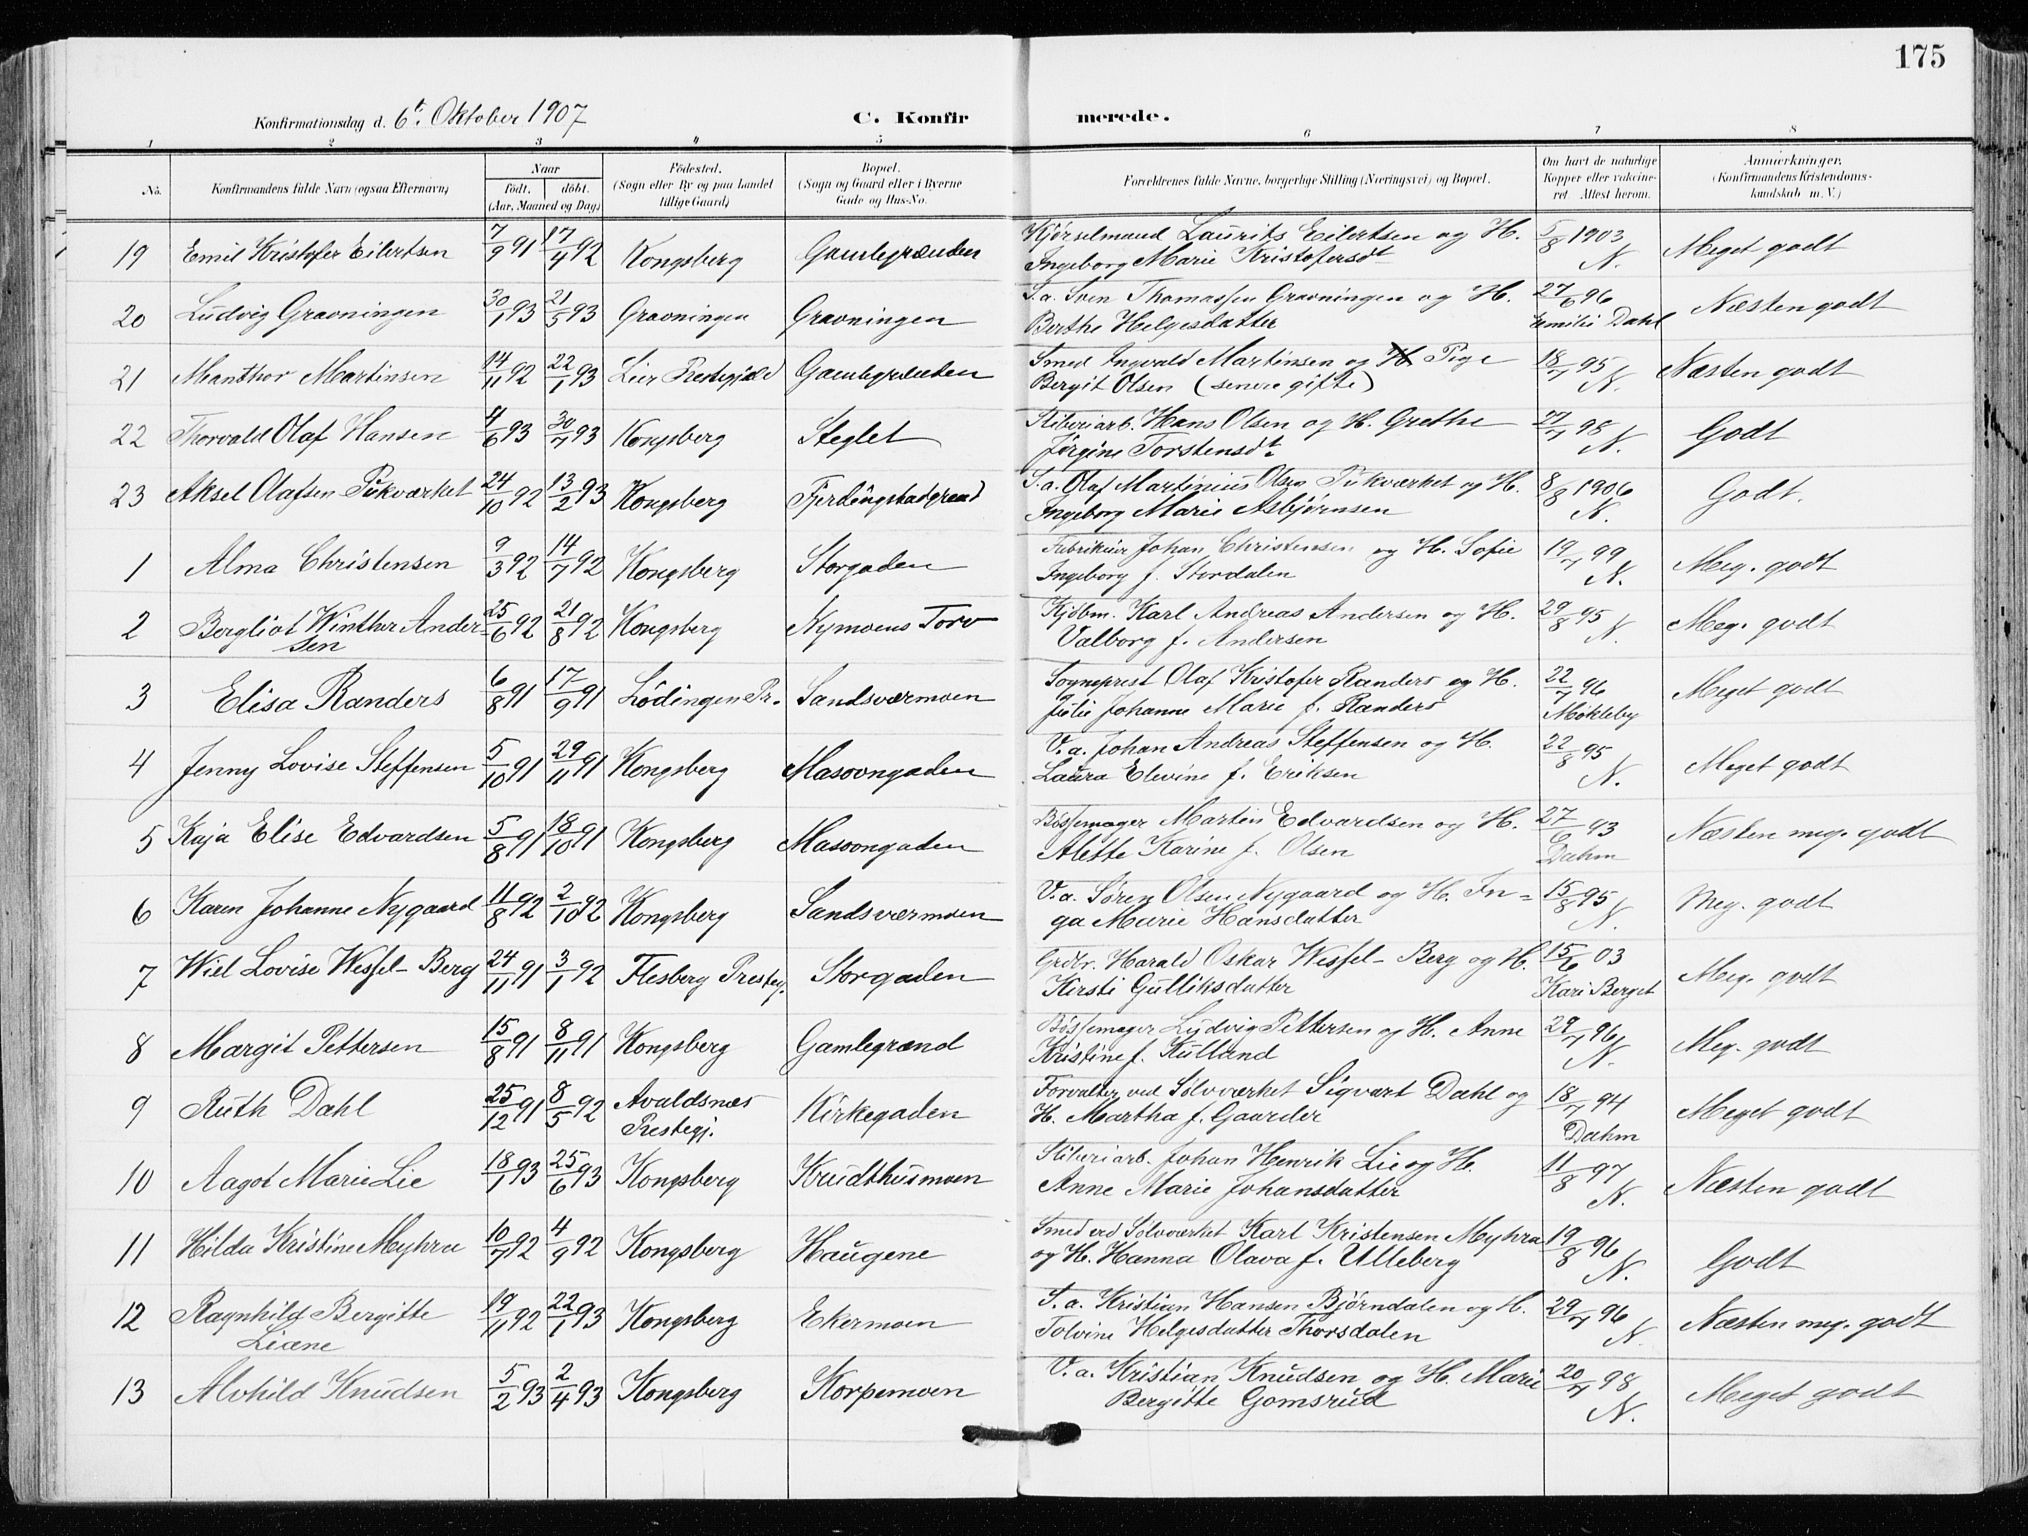 175
Konfirmationsdag d. 6t. Oktober 1907 C. Konfir merede.
1 2 3 4 5 6 7 8
No. Konfirmandens fulde Navn (ogsaa Efternavn) Naar født. døbt. (Aar, Maaned og Dag) Fødested. (Sogn eller By og paa Landet tillige Gaard) Bopæl. (Sogn og Gaard eller i Byerne Gade og Hus-No. Forældrenes fulde Navne, borgerlige Stilling (Næringsvei) og Bopæl. Om havt de naturlige Kopper eller vakcineret. Attest herom. Anmærkninger. (Konfirmandens Kristendomskundskab m. V.)
19 Emil Kristofer Eilertsen 7/9 91 17/4 92 Kongsberg Gamlegrænden Kjørselmand Laurits Eilertsen og H. 5/8 1903 Meget godt
Ingeborg Marie Kristofersdt N.
20 Ludvig Gravningen 30/1 93 21/5 93 Gravningen Gravningen S.a. Sven Thomassen Gravningen og H. 27/6 96 Næsten godt
Berthe Helgesdatter Emilie Dahl
21 Manthor Martinsen 14/11 92 22/1 93 Lier Prestegjæld Gamlegrænden Smed Ingvald Martinsen og H Pige 18/7 95 Næsten godt
Bergit Olsen (senere gifte) N.
22 Thorvald Olaf Hansen 4/6 93 30/7 93 Kongsberg Steglet Sliberiarb. Hans Olsen og H. Grethe 27/7 98 Godt
Jørgine Torstensdt. N.
23 Aksel Olafsen Pukværket 24/10 92 13/2 93 Kongsberg Fjerdingstadgrænd S.a. Olaf Martinius Olsen Pukværket og H. 8/8 1906 Godt.
Ingeborg Marie Asbjørnsen N.
1 Alma Christensen 9/3 92 14/7 92 Kongsberg Storgaden Fabrikeier Johan Christensen og H. Sofie 19/7 99 Meg. godt
Ingeborg f. Stordalen N.
2 Bergliot Winther Ander- 25/6 92 21/8 92 Kongsberg Nymoens Torv Kjøbm. Karl Andreas Andersen og H. 29/8 95 Meg. godt
sen Valborg f. Andersen N.
3 Elisa Randers 6/8 91 17/9 91 Lødingen Pr. Sandsværmoen Sogneprest Olaf Kristofer Randers og H. 22/7 96 Meget godt
Julie Johanne Marie f. Randers Møkleby
4 Jenny Lovise Steffensen 5/10 91 29/11 91 Kongsberg Masovngaden V.a. Johan Andreas Steffensen og H. 22/8 95 Meget godt
Laura Elevine f. Eriksen N.
5 Kaja Elise Edvardsen 5/8 91 18/10 91 Kongsberg Masovngaden Bøssemager Martin Edvardsen og H. 27/6 93 Næsten meg. godt
Alette Karine f. Olsen Dahm
6 Karen Johanne Nygaard 11/8 92 2/10 92 Kongsberg Sandsværmoen V.a. Søren Olsen Nygaard og H. In= 15/8 95 Meg. godt
ga Marie Hansdatter N.
7 Wiel Lovise Wessel-Berg 24/11 91 3/1 92 Flesberg Prestegj. Storgaden Grdbr. Harald Oskar Wessel-Berg og H. 15/6 03 Meg. godt
Kirsti Gulliksdatter Kari Berget
8 Margit Pettersen 15/8 91 8/11 91 Kongsberg Gamlegrænd Bøssemager Ludvig Pettersen og H. Anne 29/7 96 Meg. godt
Kristine f. Kulland N.
9 Ruth Dahl 25/12 91 8/5 92 Avaldsnæs Kirkegaden Forvalter ved Sølvværket Sigvart Dahl og 18/7 94 Meget godt
Prestegj. H. Martha f. Gaarder Dahm
10 Aagot Marie Lie 18/1 93 25/6 93 Kongsberg Krudthusmoen Sliberiarb. Johan Henrik Lie og H. 11/8 97 Næsten godt
Anne Marie Johansdatter N.
11 Hilda Kristine Myhra 10/7 92 4/9 92 Kongsberg Haugene Smed ved Sølvværket Karl Kristensen Myhra 19/8 96 Godt
og H. Hanna Olava f. Ulleberg N.
12 Ragnhild Bergitte 19/11 92 22/1 93 Kongsberg Ekermoen S.a. Kristian Hansen Bjørndalen og H. 29/7 96 Næsten meg. godt
Liane Tolvine Helgesdatter Thorsdalen N
13 Alvhild Knudsen 5/2 93 2/4 93 Kongsberg Korpemoen V.a. Kristian Knudsen og H. Marie 20/7 98 Meget godt
Bergitte Gomsrud N.